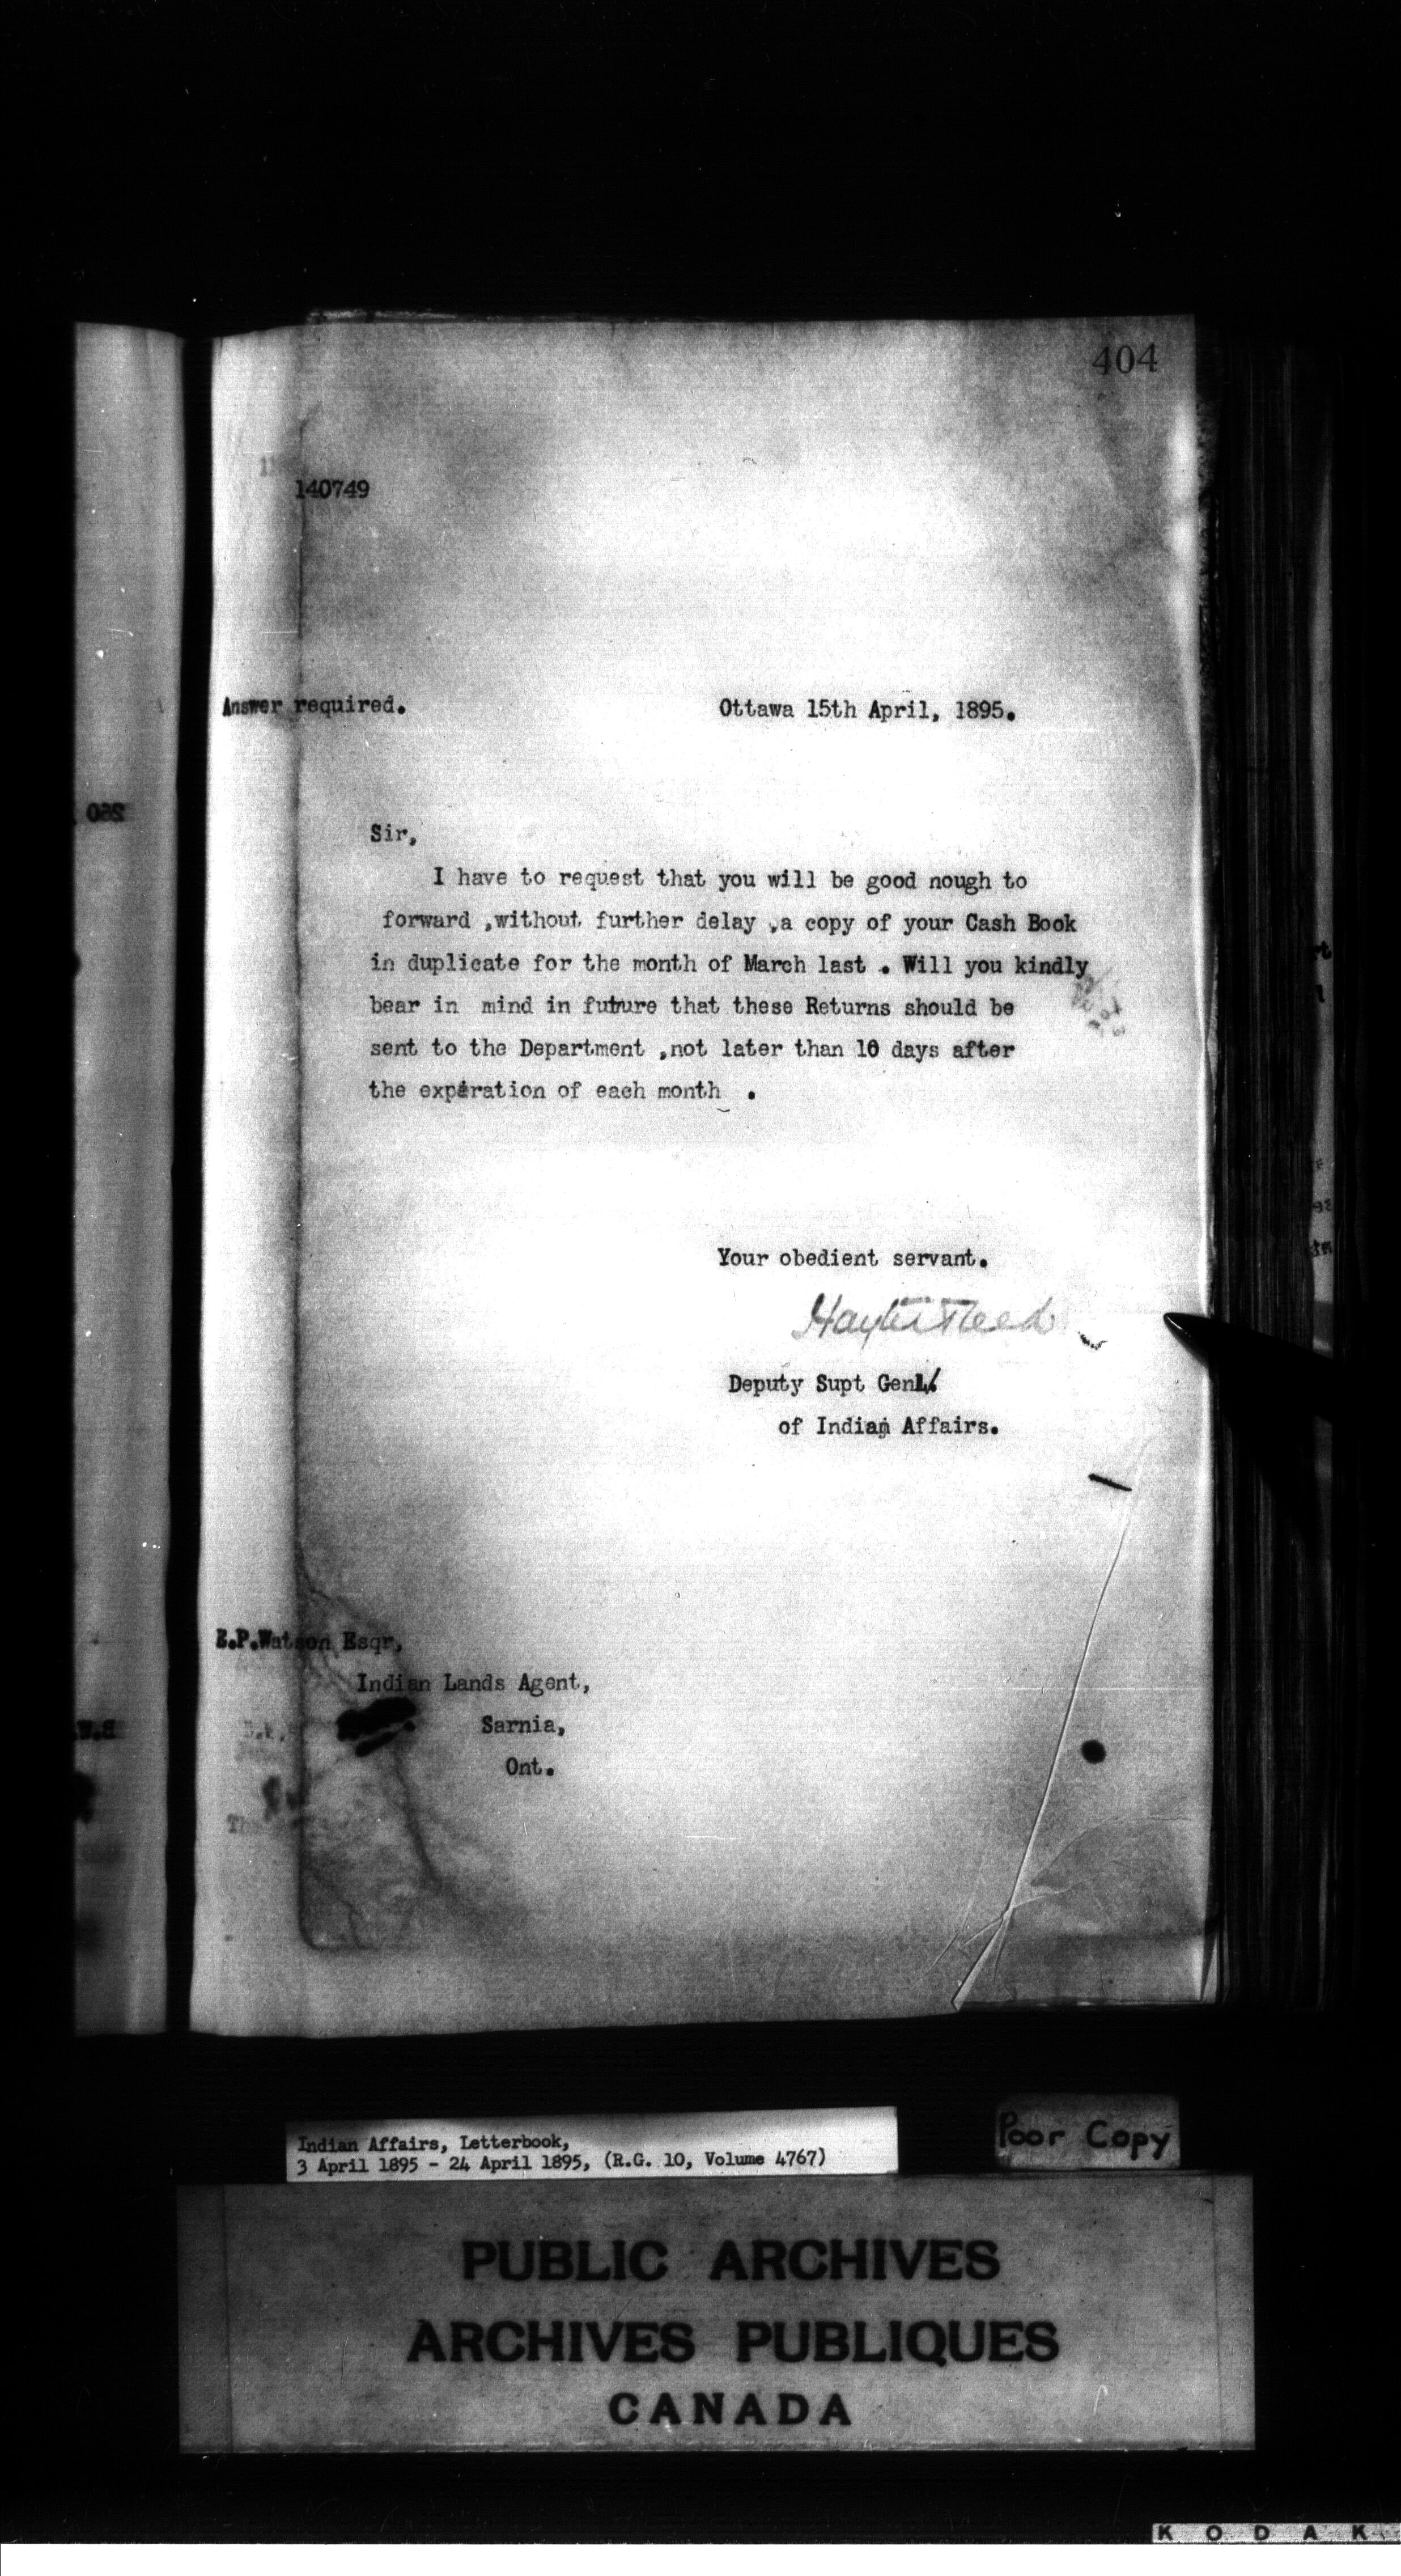 404
140749
Answer required.
Ottawa 15th April, 1895.
Sir,
I have to request that you will be good nough to
forward ,without further delay ,a copy of your Cash Book
in duplicate for the month of March last . Will you kindly
bear in mind in future that these Returns should be
sent to the Department ,not later than 10 days after
the expiration of each month .
Your obedient servant.
Hayter Reed
Deputy Supt Genl.
of Indian Affairs.
E.P.Watson Esqr,
Indian Lands Agent,
Sarnia,
Ont.
260
Indian Affairs, Letterbook,
3 April 1895 - 24 April 1895, (R.G. 10, Volume 4767)
Poor Copy
PUBLIC ARCHIVES
ARCHIVES PUBLIQUES
CANADA
KODAK